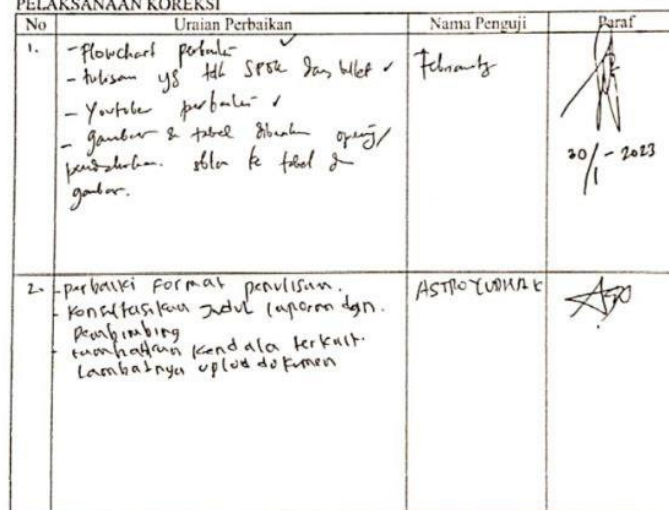 PELAKSANAAN KOREKSI
No Uraian Perbaikan Nama Penguji Paraf
1. - Flowchart perbaiki ✓
- tulisan yg tdk SPOK dan ✓
- Youtube perbaiki ✓
- gambar & tabel diberikan
sblm ke tabel &
gambar.
30/1 - 2023
2. - perbaiki format penulisan. ASTRO YUDHA K
- konsultasikan Judul laporan dgn.
Pembimbing
- tambahkan kendala terkait.
Lambatnya uplod dokumen